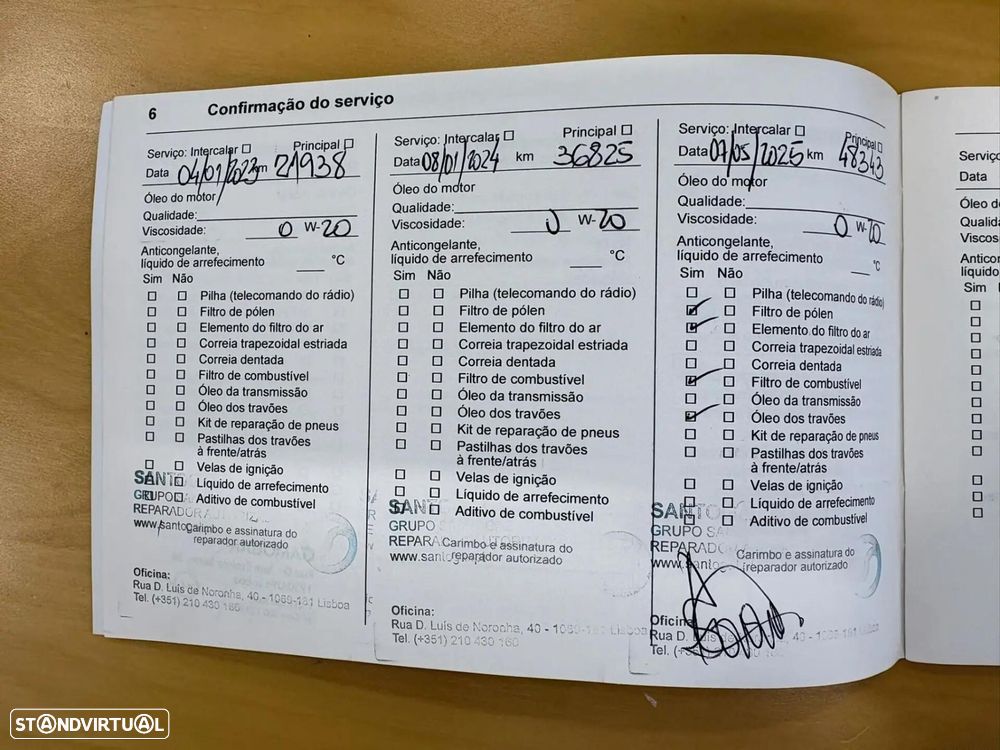 6 Confirmação do serviço
Serviço: Intercalar ☐ Principal ☐
Data 04/01/2023 km 21938
Óleo do motor
Qualidade:
Viscosidade: 0 W-20
Anticongelante,
líquido de arrefecimento ___ °C
Sim Não
☐ ☐ Pilha (telecomando do rádio)
☐ ☐ Filtro de pólen
☐ ☐ Elemento do filtro do ar
☐ ☐ Correia trapezoidal estriada
☐ ☐ Correia dentada
☐ ☐ Filtro de combustível
☐ ☐ Óleo da transmissão
☐ ☐ Óleo dos travões
☐ ☐ Kit de reparação de pneus
☐ ☐ Pastilhas dos travões
à frente/atrás
☐ ☐ Velas de ignição
☐ ☐ Líquido de arrefecimento
☐ ☐ Aditivo de combustível
GRUPO
REPARADOR
Carimbo e assinatura do
reparador autorizado
Oficina:
Rua D. Luis de Noronha, 40 - 1069-161 Lisboa
Tel. (+351) 210 430 160
Serviço: Intercalar ☐ Principal ☐
Data 08/01/2024 km 36825
Óleo do motor
Qualidade:
Viscosidade: 0 W-20
Anticongelante,
líquido de arrefecimento ___ °C
Sim Não
☐ ☐ Pilha (telecomando do rádio)
☐ ☐ Filtro de pólen
☐ ☐ Elemento do filtro do ar
☐ ☐ Correia trapezoidal estriada
☐ ☐ Correia dentada
☐ ☐ Filtro de combustível
☐ ☐ Óleo da transmissão
☐ ☐ Óleo dos travões
☐ ☐ Kit de reparação de pneus
☐ ☐ Pastilhas dos travões
à frente/atrás
☐ ☐ Velas de ignição
☐ ☐ Líquido de arrefecimento
☐ ☐ Aditivo de combustível
GRUPO
Carimbo e assinatura do
reparador autorizado
Oficina:
Rua D. Luis de Noronha, 40 - 1069-161 Lisboa
Tel. (+351) 210 430 160
Serviço: Intercalar ☐ Principal ☐
Data 07/05/2025 km 48343
Óleo do motor
Qualidade:
Viscosidade: 0 W-20
Anticongelante,
líquido de arrefecimento ___ °C
Sim Não
☐ ☐ Pilha (telecomando do rádio)
☑ ☐ Filtro de pólen
☑ ☐ Elemento do filtro do ar
☐ ☐ Correia trapezoidal estriada
☐ ☐ Correia dentada
☑ ☐ Filtro de combustível
☐ ☐ Óleo da transmissão
☑ ☐ Óleo dos travões
☐ ☐ Kit de reparação de pneus
☐ ☐ Pastilhas dos travões
à frente/atrás
☐ ☐ Velas de ignição
☐ ☐ Líquido de arrefecimento
☐ ☐ Aditivo de combustível
GRUPO
Carimbo e assinatura do
reparador autorizado
Rua D. Luis de Noronha, 40 - 1069-161 Lisboa
Serviç
Data
Óleo d
Qualid
Viscos
Anticon
líquido
Sim
STANDVIRTUAL